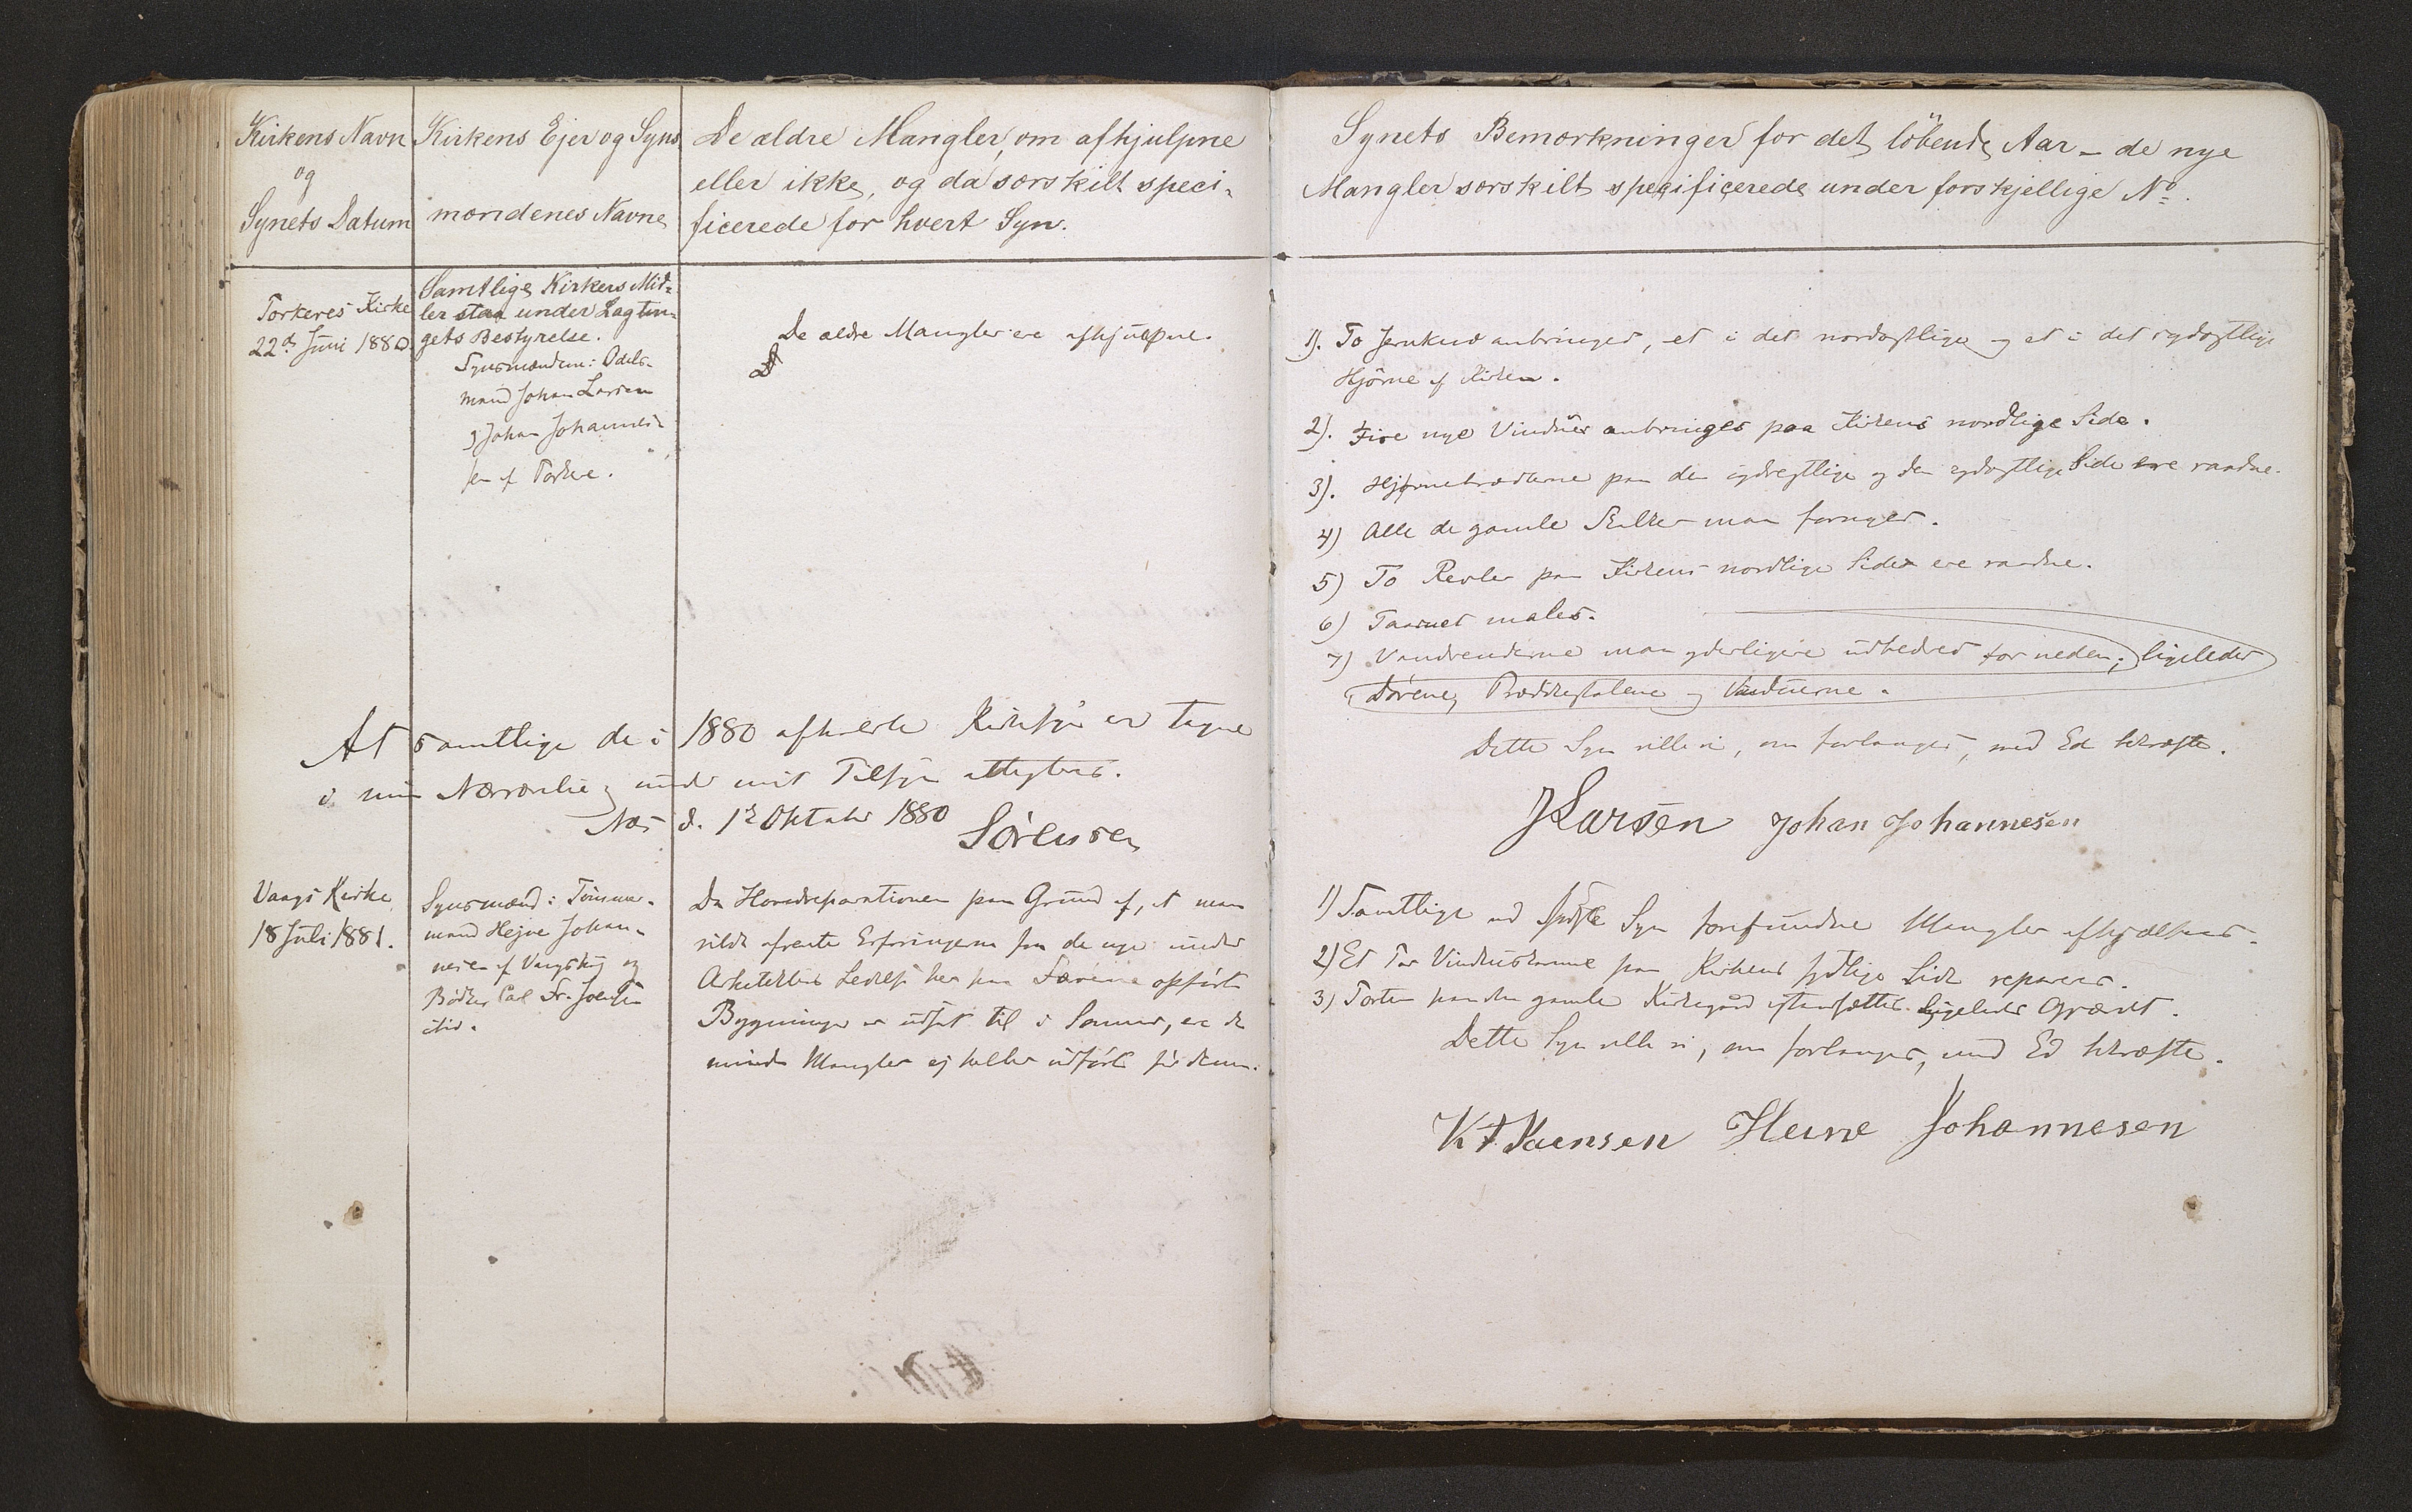 Kirkens Navn
og
Synets Datum
Kirkens Ejer og Syns
mændenes Navne
De ældre Mangler, om afhjulpne
eller ikke, og da særskilt speci-
ficerede for hvert Syn.
Synets Bemærkninger for det löbende Aar – de nye
Mangler særskilt specificerede under forskjellige No.
Kirke
22de Juni 1880.
Samtlige Kirkers Mid-
ler staa under Lagtin-
gets Bestyrelse.
Synsmændene: Odels-
mand Johan Larsen
og Johan Johannes-
sen af
De ældre Mangler ere afhjulpne.
1). To anbringes, et i det nordøstlige og et i det sydøstlige
Hjörne af Kirken.
2). Fire nye Vinduer anbringes paa Kirkens nordlige Side.
3). Hjørnebrædderne paa den sydvestlige og den sydøstlige Side ere raadne.
4) Alle de gamle maa fornyes.
5) To Revler paa Kirkens nordlige Side ere raadne.
6) Taarnet males.
7) Vandrenderne maa yderligere udbedres for neden; ligeledes
Dörene, og Vinduerne.
Dette Syn ville vi, om forlanges, med Ed bekræfte.
JLarsen Johan Johannesen
At samtlige de i 1880 afholdte Kirkesyn er tagne
i min Nærværelse og under mit Tilsyn attesteres.
Næs d. 12 Oktober 1880
Sörensen
Vaags Kirke
18 Juli 1881.
Synsmænd: Tömmer-
mand Hejne Johan-
nesen af og
Bödker Carl Fr. Joensen
ibid.
Da Hovedreparationen paa Grund af, at man
vilde afvente Erfaringerne fra de nye under
Arkitektens Ledelse her paa Færöerne opförte
Bygninger er udsat til i Sommer, ere de
mindre Mangler ej heller udförte för denne.
1) Samtlige ved Syn forefundne Mangler afhjælpes.
2) Et Par Vindueskarme paa Kirkens sydlige Side repareres.
3) Porten paa den gamle Kirkegaard istandsættes. Ligeledes Gjærdet.
Dette Syn ville vi, om forlanges, med Ed bekræfte.
Johannesen